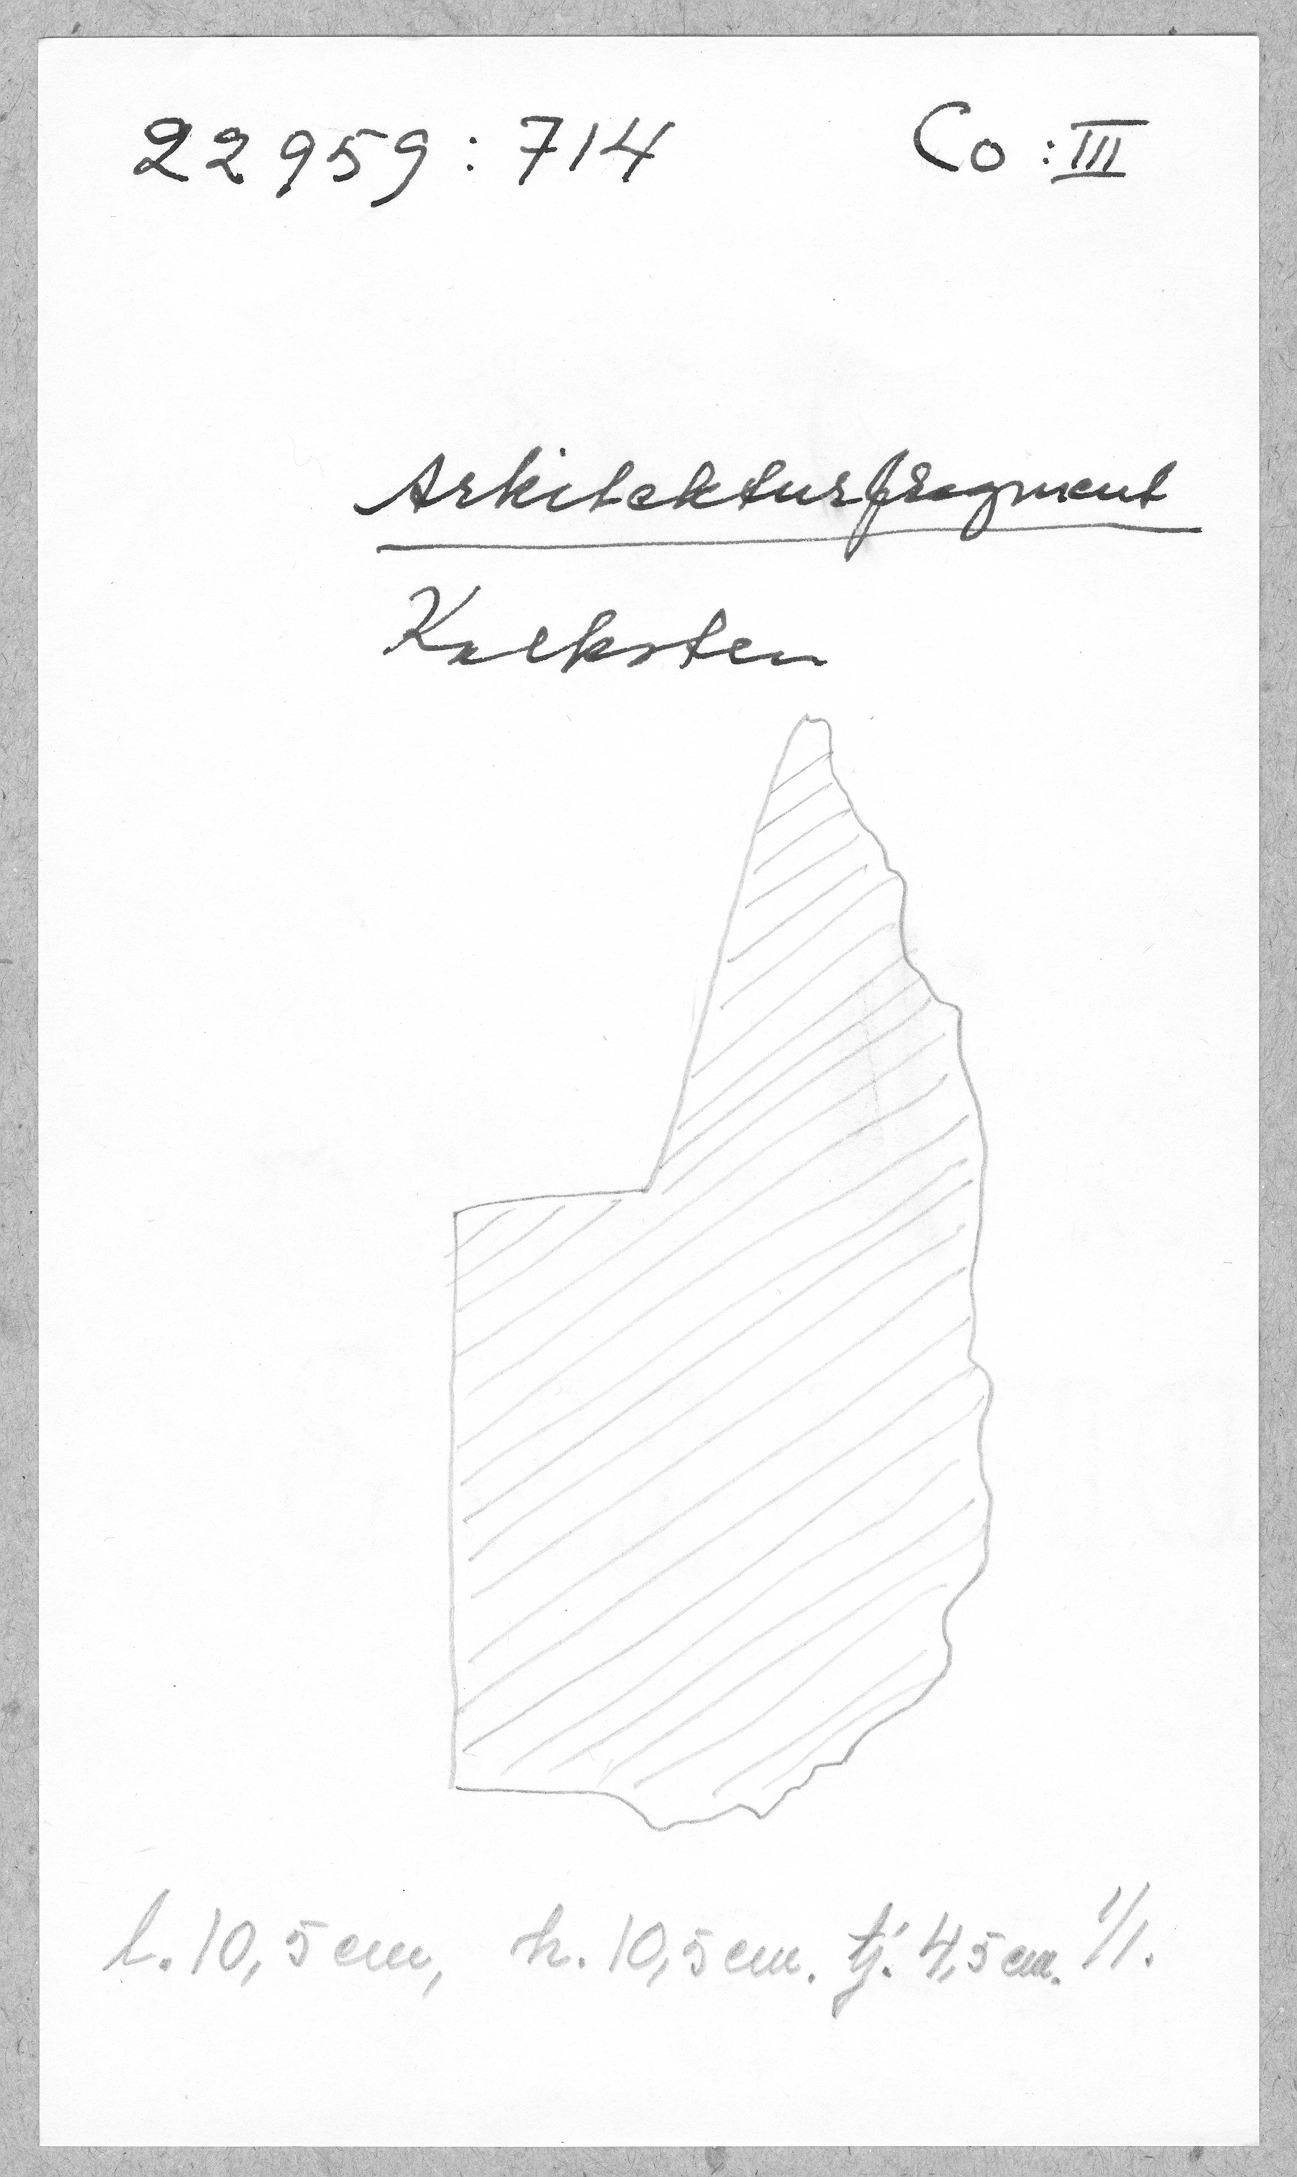 22959:714 Co:III
Arkitekturfragment
Kalksten
l. 10,5 cm, h. 10,5 cm. tj. 4,5 cm. 1/1.